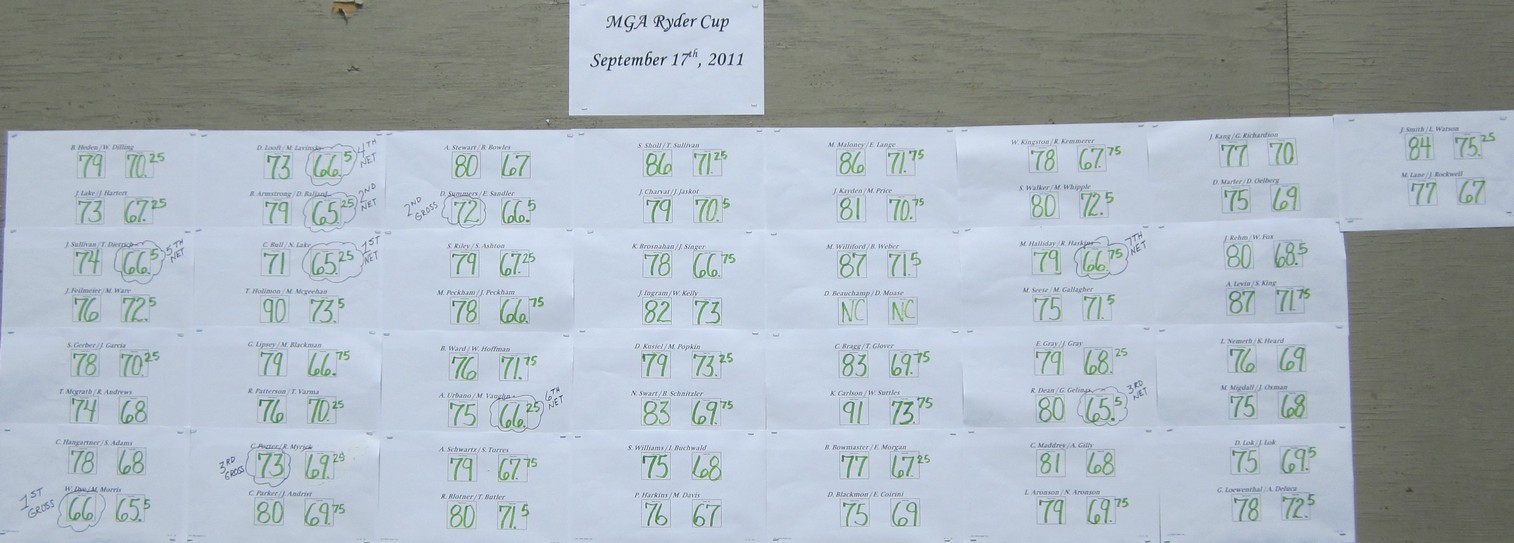 MGA Ryder Cup
September 17th, 2011
B. Heden / W. Dilling
79 70.25
J. Lake / J. Hartert
73 67.25
D. Looft / M. Lavinsky
73 66.5 4TH NET
B. Armstrong / D. Ballard
79 65.25 2ND NET
A. Stewart / B. Bowles
80 67
D. Summers / E. Sandler
2ND GROSS 72 66.5
S. Sholl / T. Sullivan
86 71.25
J. Charvat / J. Jaskot
79 70.5
M. Maloney / E. Lange
86 71.75
J. Kayden / M. Price
81 70.75
W. Kingston / R. Kemmerer
78 67.75
S. Walker / M. Whipple
80 72.5
J. Kang / G. Richardson
77 70
D. Marler / D. Oelberg
75 69
J. Smith / L. Watson
84 75.25
M. Lane / J. Rockwell
77 67
J. Sullivan / T. Dietrich
74 66.5 5TH NET
J. Feilmeier / M. Ware
76 72.5
C. Bull / N. Lake
71 65.25 1ST NET
T. Holimon / M. Mcgeehan
90 73.5
S. Riley / S. Ashton
79 67.25
M. Peckham / J. Peckham
78 66.75
K. Brosnahan / J. Singer
78 66.75
J. Ingram / W. Kelly
82 73
M. Williford / B. Weber
87 71.5
D. Beauchamp / D. Moase
NC NC
M. Halliday / R. Haskins
79 66.75 7TH NET
M. Seese / M. Gallagher
75 71.5
J. Rehm / W. Fox
80 68.5
A. Levin / S. King
87 71.75
S. Gerber / J. Garcia
78 70.25
T. Mcgrath / R. Andrews
74 68
G. Lipsey / M. Blackman
79 66.75
R. Patterson / T. Varma
76 70.25
B. Ward / W. Hoffman
76 71.75
A. Urbano / M. Vaughn
75 66.25 6TH NET
D. Kosiel / M. Popkin
79 73.25
N. Swart / B. Schnitzler
83 69.75
C. Bragg / T. Glover
83 69.75
K. Carlson / W. Suttles
91 73.75
E. Gray / J. Gray
79 68.25
R. Dean / G. Gelinas
80 65.5 3RD NET
L. Nemeth / K. Heard
76 69
M. Migdall / J. Oxman
75 68
C. Hangartner / S. Adams
78 68
W. Dye / M. Morris
1ST GROSS 66 65.5
C. Porter / R. Myrick
3RD GROSS 73 69.25
C. Parker / J. Andrist
80 69.75
A. Schwartz / S. Torres
79 67.75
R. Blotner / T. Butler
80 71.5
S. Williams / J. Buchwald
75 68
P. Harkins / M. Davis
76 67
B. Bowmaster / E. Morgan
77 67.25
D. Blackmon / E. Coirini
75 69
C. Maddrey / A. Gilly
81 68
L. Aronson / N. Aronson
79 69.75
D. Lok / J. Lok
75 69.5
G. Loewenthal / A. Deluca
78 72.5